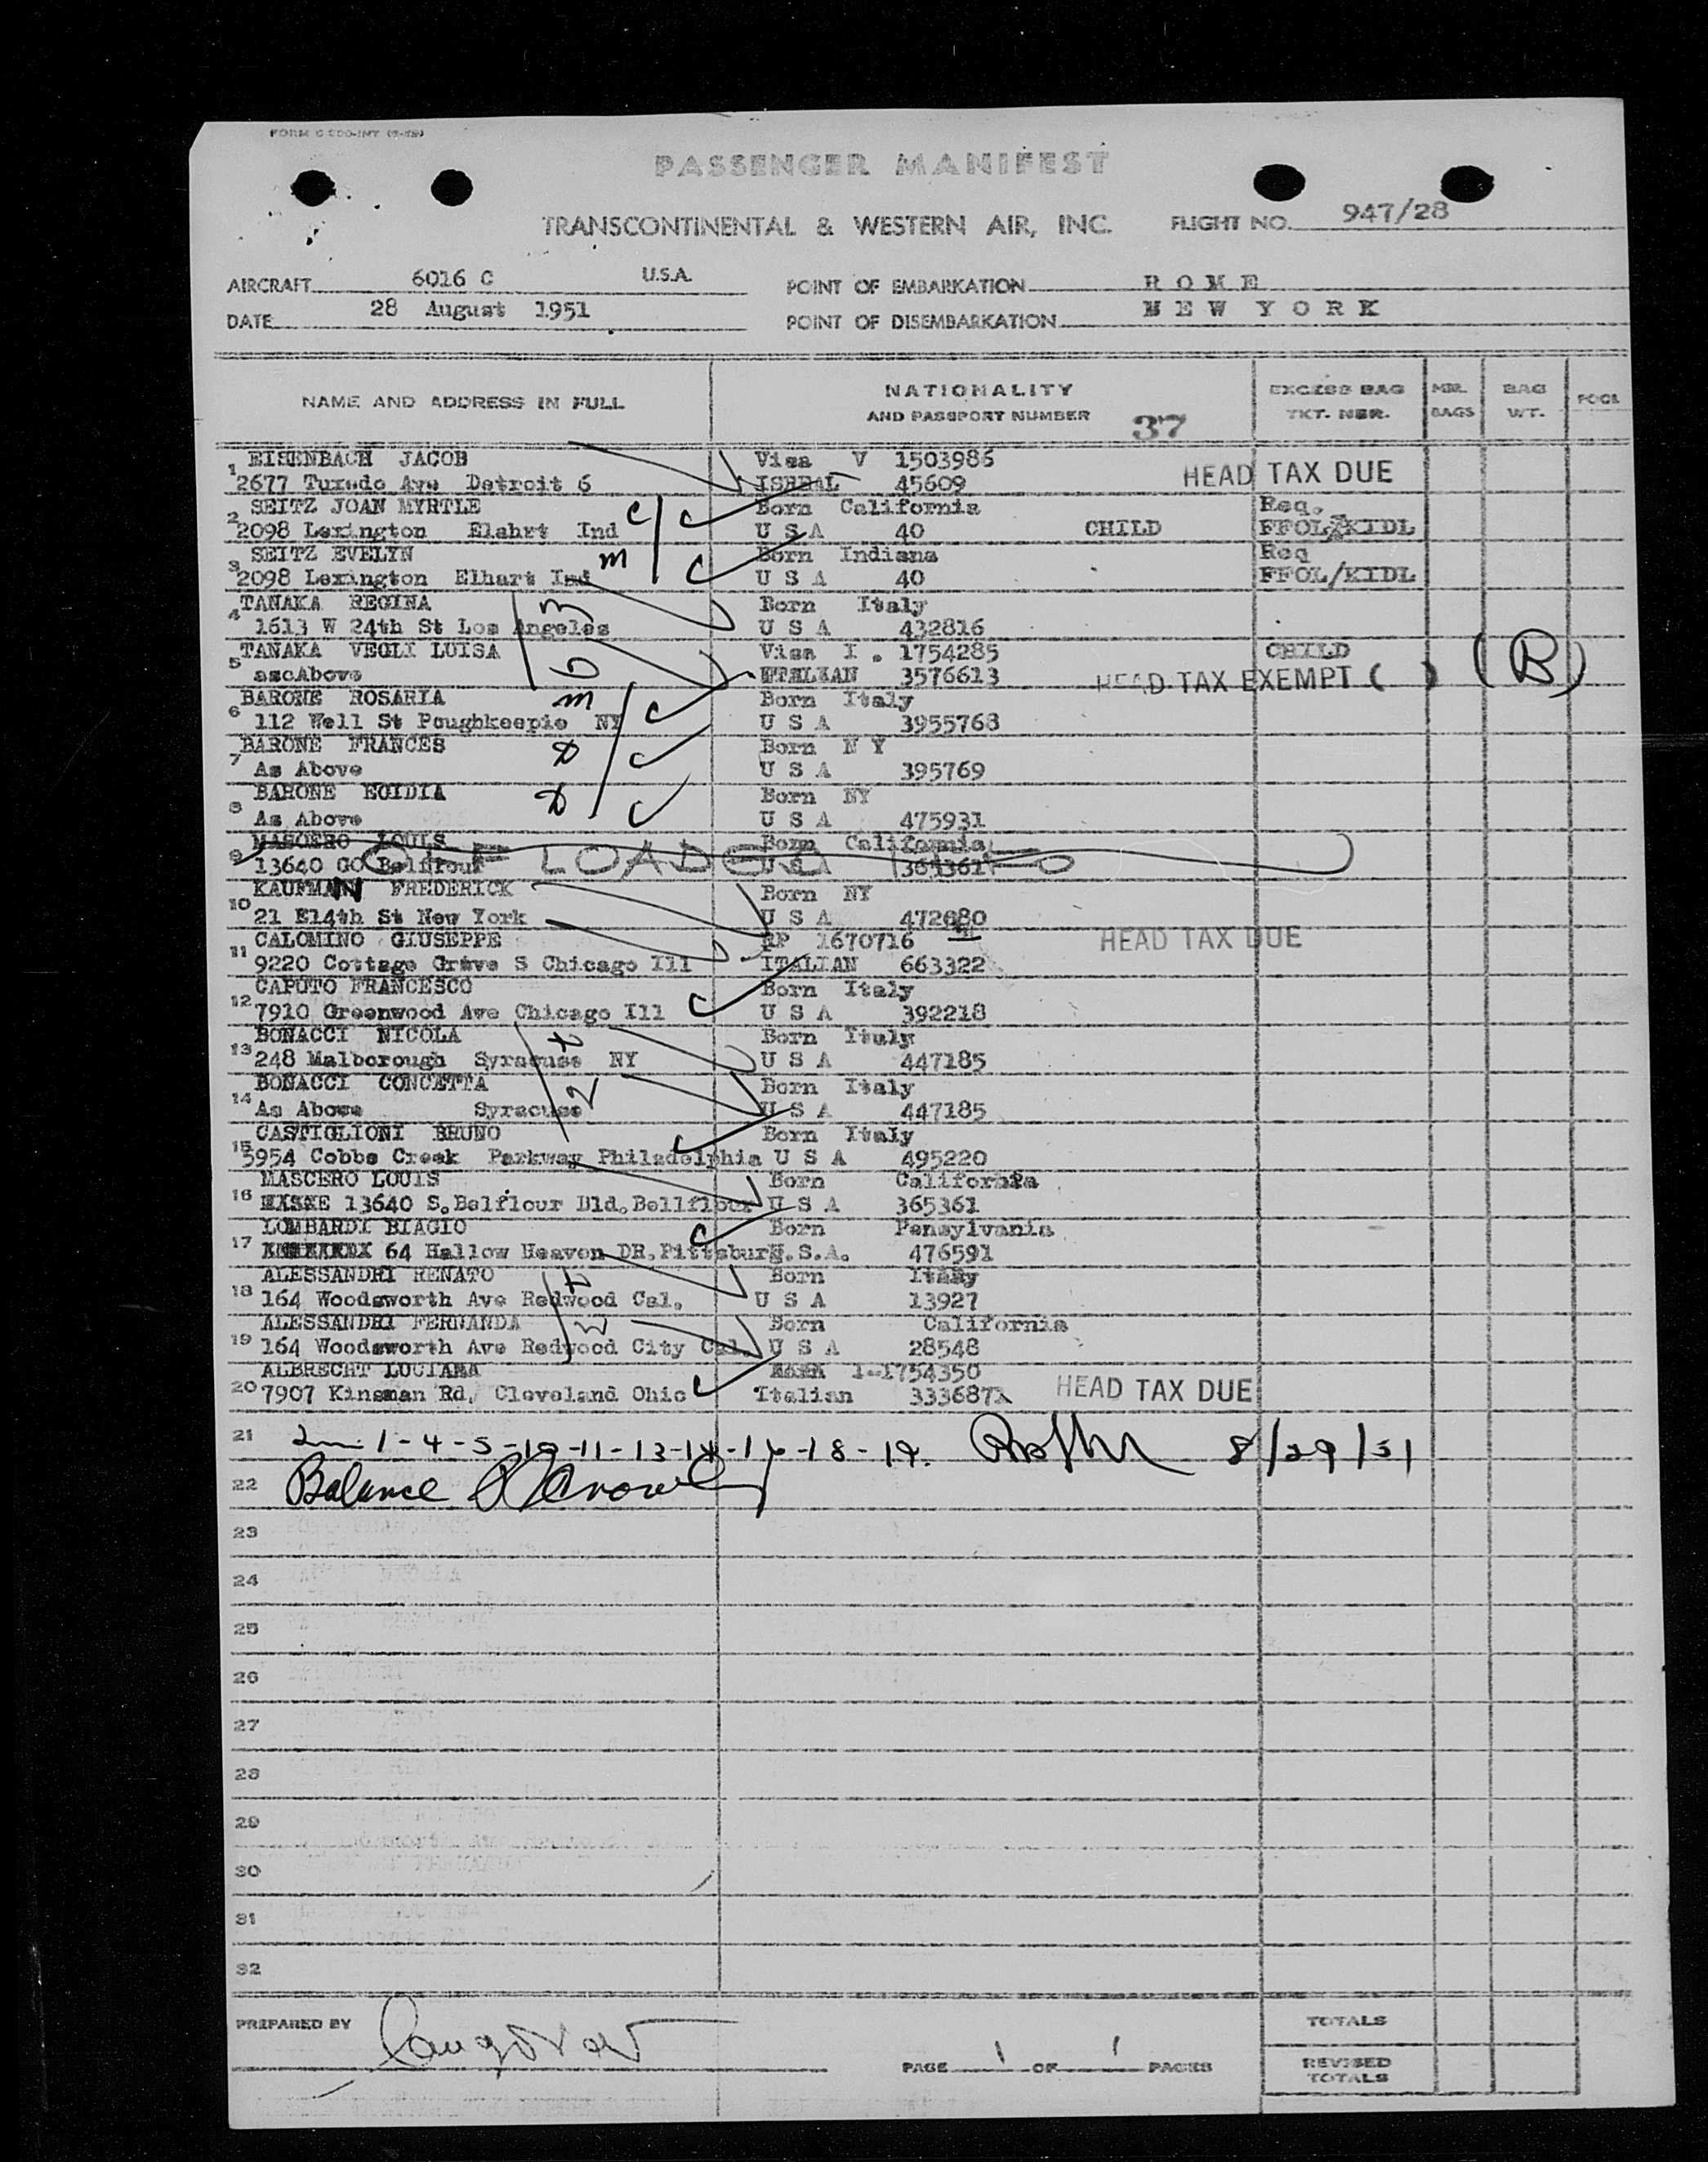 FORM
PASSENGER MANIFEST
TRANSCONTINENTAL & WESTERN AIR, INC. FLIGHT NO. 947/28
AIRCRAFT 6016 C U.S.A. POINT OF EMBARKATION R O M E
DATE 28 August 1951 POINT OF DISEMBARKATION N E W Y O R K
NAME AND ADDRESS IN FULL NATIONALITY AND PASSPORT NUMBER 37 EXCESS BAG TKT. NBR. NBR. BAGS BAG WT.
1 EISENBACH JACOB Visa V 1503986
2677 Tuxedo Ave Detroit 6 ISREAL 45609 HEAD TAX DUE
2 SEITZ JOAN MYRTLE C Born California Req.
2098 Lexington Elahrt Ind U S A 40 CHILD FFOL/KIDL
3 SEITZ EVELYN m Born Indiana Req
2098 Lexington Elhart Ind U S A 40 FFOL/KIDL
4 TANAKA REGINA Born Italy
1613 W 24th St Los Angeles U S A 432816
5 TANAKA VEGLI LUISA D Visa I . 1754285 CHILD
ascAbove 3576613 HEAD TAX EXEMPT ( ) (B)
6 BARONE ROSARIA m Born Italy
112 Well St Poughkeepie NY U S A 3955768
7 BARONE FRANCES D Born N Y
As Above U S A 395769
8 BARONE EGIDIA D Born NY
As Above U S A 475931
9 MASCERO LOUIS Born California
13640 GO OFF LOADED U S A 365361
10 KAUFMANN FREDERICK Born NY
21 E14th St New York U S A 472680
11 CALOMINO GIUSEPPE RP 1670716 HEAD TAX DUE
9220 Cottage Grave S Chicago Ill ITALIAN 663322
12 CAPUTO FRANCESCO Born Italy
7910 Greenwood Ave Chicago Ill U S A 392218
13 BONACCI NICOLA Born Italy
248 Malborough Syracuse NY U S A 447185
14 BONACCI CONCETTA Born Italy
As Above Syracuse U S A 447185
15 CASTIGLIONI BRUNO Born Italy
5954 Cobbs Creek Parkway Philadelphia U S A 495220
MASCERO LOUIS Born California
16 13640 S.Belflour Bld.Bellflour U S A 365361
LOMBARDI BIAGIO Born Pensylvania
17 64 Hallow Heaven DR.Pittsburg U.S.A. 476591
ALESSANDRI RENATO Born Italy
18 164 Woodsworth Ave Redwood Cal. U S A 13927
ALESSANDRI FERNANDA Born California
19 164 Woodsworth Ave Redwood City Cal. U S A 28548
ALBRECHT LUCIANA 1-1754350
20 7907 Kinsman Rd, Cleveland Ohio Italian 333687 HEAD TAX DUE
21 1-4-5-10-11-13-14-16-18-19. 8/29/51
22 Balance
23
24
25
26
27
28
29
30
31
32
PREPARED BY TOTALS
PAGE 1 OF 1 PAGES REVISED TOTALS